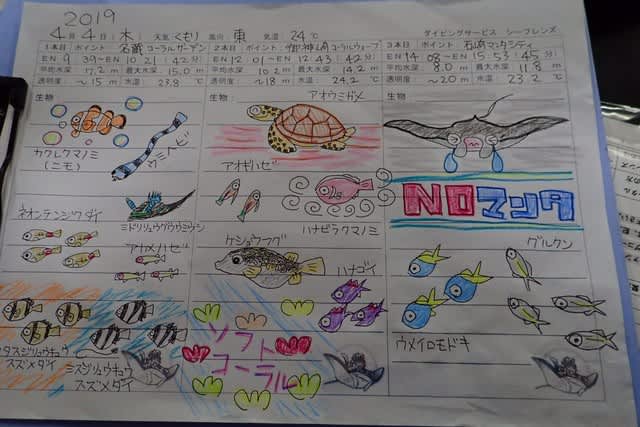 2019
4月4日:木: 天気 くもり 風向: 東 気温: 24℃ ダイビングサービス シーフレンズ
1本目 ポイント 名蔵コーラルガーデン
EN 9:39〜EN 10:21(42分)
平均水深 17.2m 最大水深 15.0m
透明度 〜15m 水温 23.9℃
2本目 ポイント 御神崎コーラルウェーブ
EN 12:01〜EN 12:43(42分)
平均水深 10.2m 最大水深 14.2m
透明度 〜18m 水温 24.2℃
3本目 ポイント 石崎マンタシティ
EN 14:08〜EN 15:53(45分)
平均水深 8.0m 最大水深 11.8m
透明度 〜20m 水温 23.2℃
生物:
カクレクマノミ
(ニモ)
ウミヘビ
ネオンテンジクダイ
ミドリリュウグウウミウシ
アヤメハゼ
ミスジリュウキュウ
スズメダイ
生物:
アオウミガメ
アオギハゼ
ハナビラクマノミ
ケショウフグ
ハナゴイ
ソフト
コーラル
生物
NOマンタ
グルクン
ウメイロモドキ